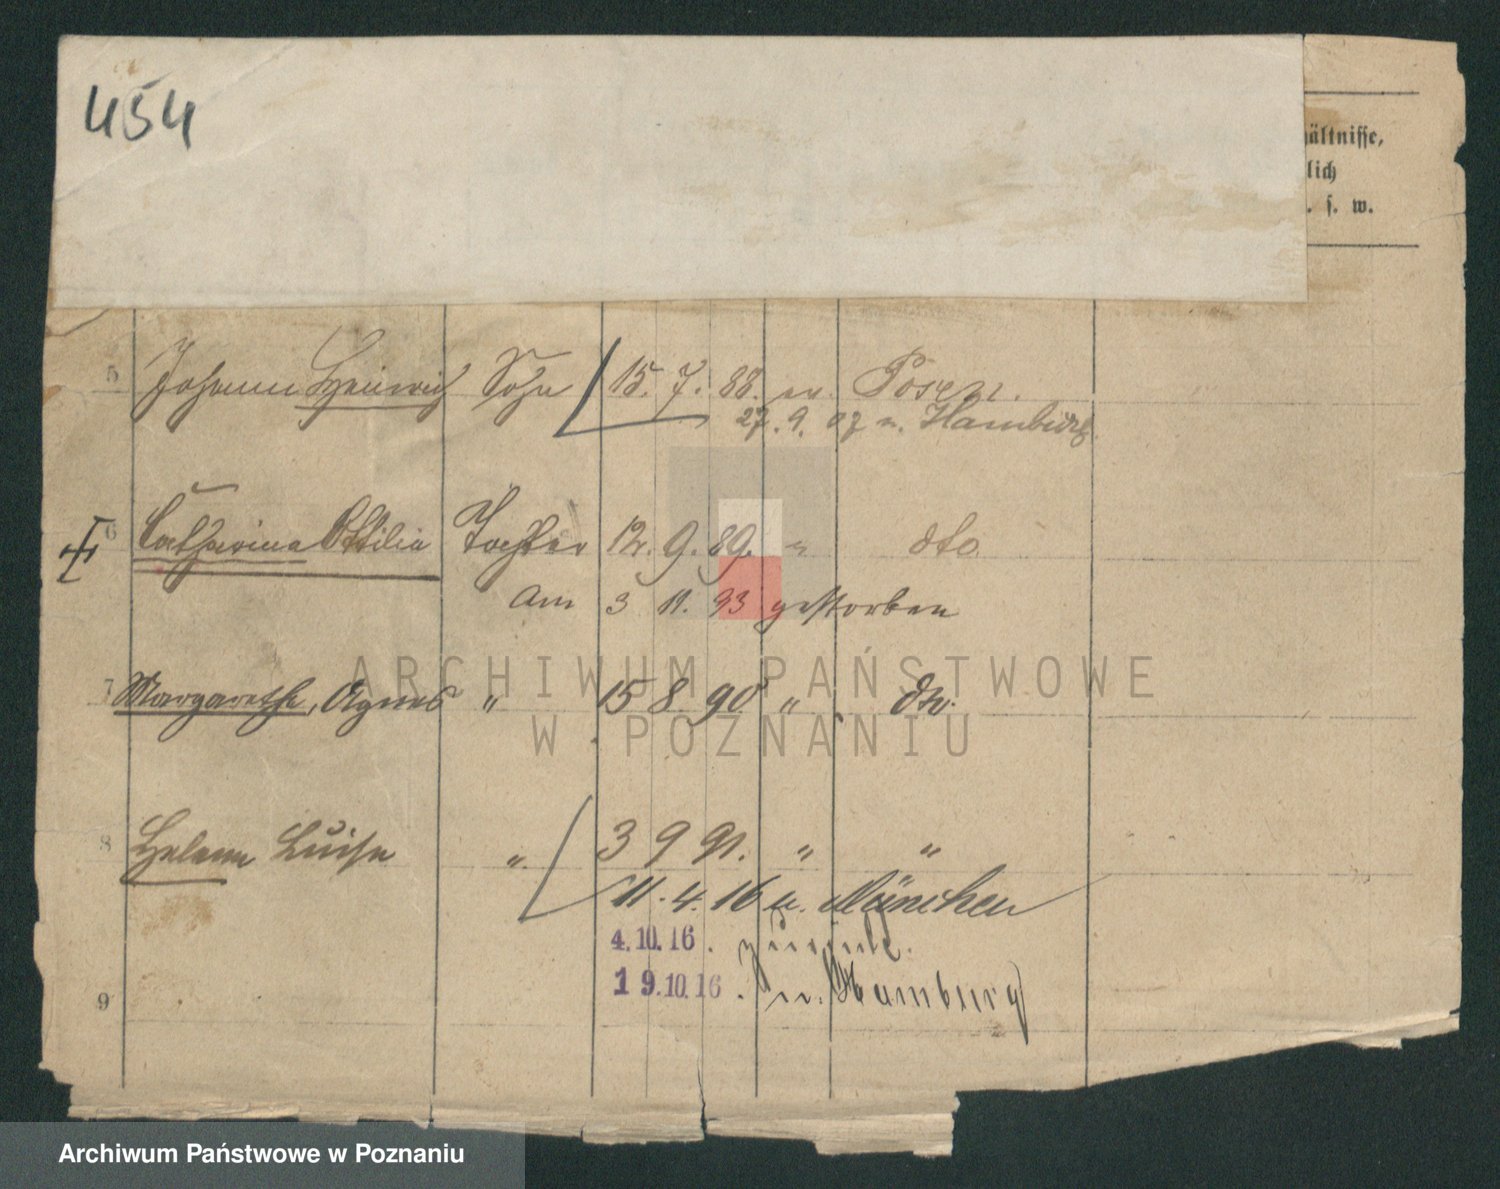 454
hältnisse,
lich
. s. w.
5 Johann Heinrich Sohn 15. 7. 88. ev. Posen.
27. 9. 07 n. Hamburg
6 Catharina Ottilia Tochter 12. 9. 89. " dto
am 3 11. 93 gestorben
7 Margarethe, Agnes " 15 8. 90 " dto.
ARCHIWUM PAŃSTWOWE
W POZNANIU
8 Helene Luise " 3 9 91. " "
11. 4. 16 n. München
4.10.16. zurück.
19.10.16. n. Hamburg
9
Archiwum Państwowe w Poznaniu